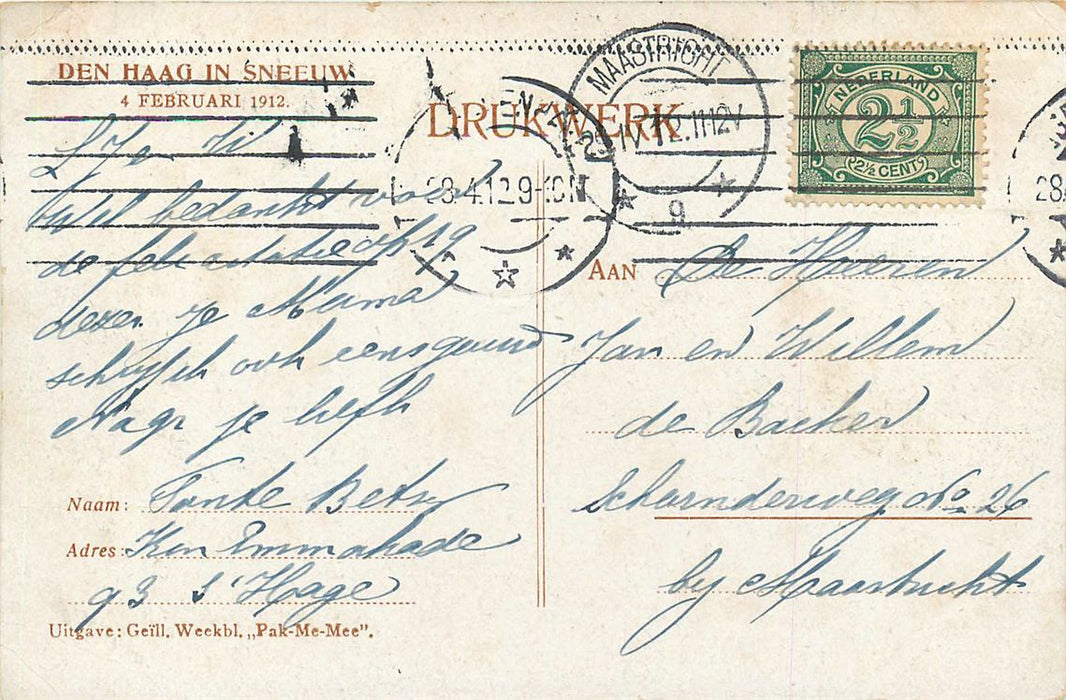 DEN HAAG IN SNEEUW
4 FEBRUARI 1912.
DRUKWERK
MAASTRICHT
12.11-12V
9
28.4.12.9-10N
NEDERLAND
2½
2½ CENT
28.
L J en W
bedankt voor
de felicitatie op 19
dezer. je Mama
schrijft ook eens gauw
Dag je liefh
Naam: Tante Betsy
Adres: Kon Emmakade
93 s'Hage
Uitgave: Geïll. Weekbl. „Pak-Me-Mee".
AAN De Heeren
Jan en Willem
de Backer
Scharnderweg No 26
by Maastricht